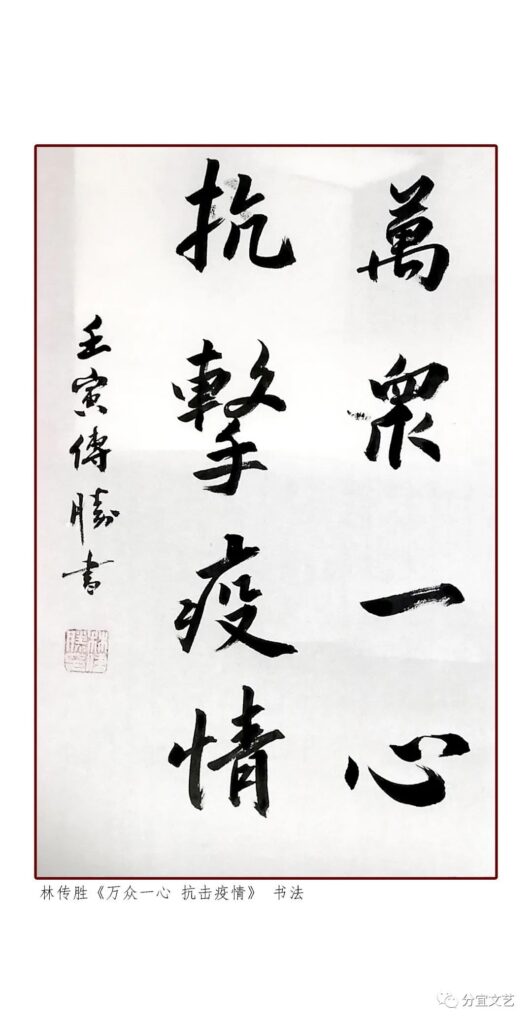 萬衆一心
抗擊疫情
壬寅傳勝書
林传胜《万众一心 抗击疫情》 书法
分宜文艺